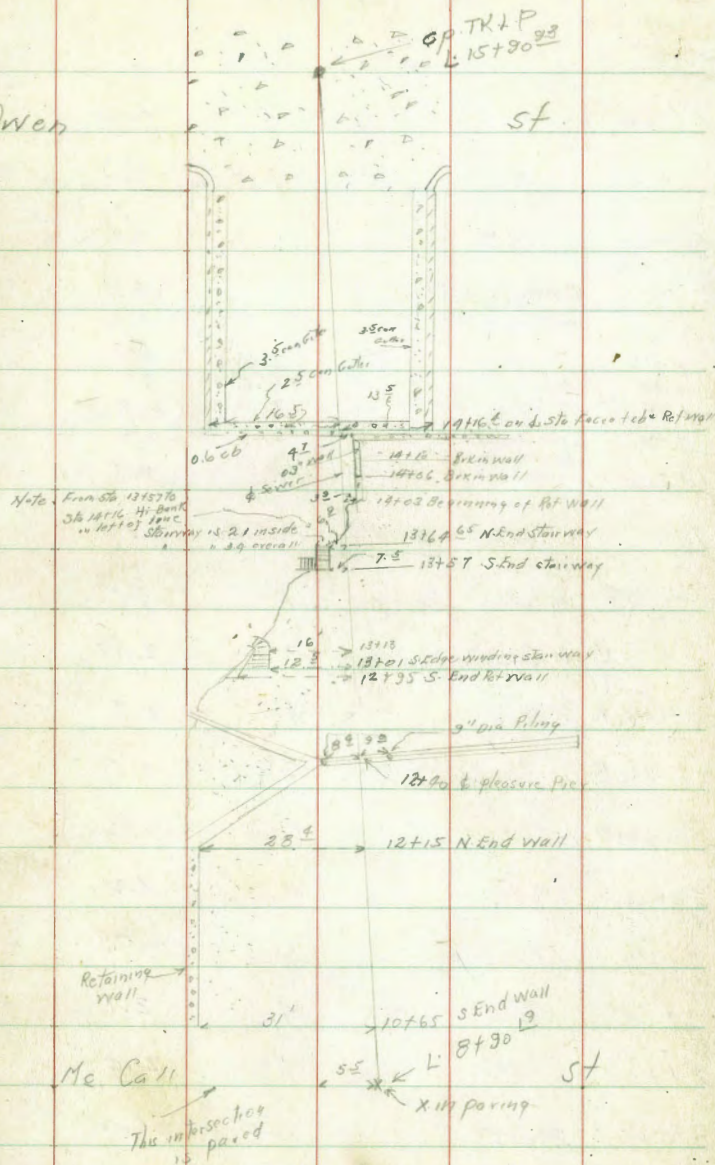 cp. TK & P
L. 15+90 93
Owen St.
3.5 con Gutter
3.5 con Gutter
2.5 con Gutter
13.5
16.5
14+16.4 on ₵ Sta Face + cb & Ret wall
0.6 cb
4.7
03" Wall
14+10 Brk in wall
14+06 Brk in wall
₵ Sewer
3.2
14+03 Beginning of Ret Wall
Note: From Sta 13+57 to
Sta 14+16 Hi-Bank
on left of line
Stairway is 2.1 inside
" " 3.9 overall
13+64 65 N-End Stairway
7.5
13+57 S-End stairway
16'
13+13
12.5
13+01 S-Edge winding stairway
12+95 S-End Ret Wall
9" Dia Piling
8.9
9.2
12+40 ₵ pleasure Pier
28.4
12+15 N-End Wall
Retaining
Wall
31'
10+65 S End Wall
L. 8+90 19
Mc Call St
5.5
X in paving
This intersection
is paved